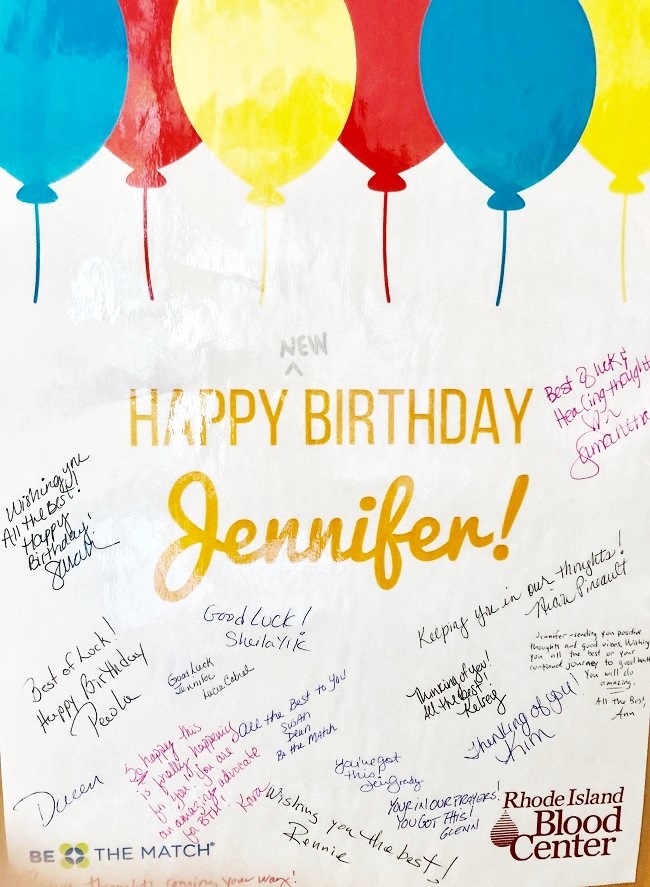 NEW
^
HAPPY BIRTHDAY
Jennifer!
Best of luck &
Healing thoughts
Samantha
Wishing you
All the Best!
Happy
Birthday!
Sarah
Keeping you in our thoughts!
Good Luck!
Sheila Yik
Best of Luck!
Happy Birthday
Paola
Good Luck
Jennifer
Jennifer - sending you positive
thoughts and good vibes. Wishing
you all the best on your
continued journey to good health
You will do
amazing.
All The Best,
Ann
Thinking of you!
All the Best
Kelsey
Thinking of you!
Kim
All the Best to You
SWAN
Dean
Be the Match
So happy this
is finally happening
for you! You are
an amazing advocate
for BTM
Kara
You've got
this!
Jen Grady
Doreen
Wishing you the best!
Rennie
YOUR IN OUR PRAYERS!
YOU GOT THIS!
GLENN
BE THE MATCH®
Rhode Island
Blood
Center
thoughts coming your way!